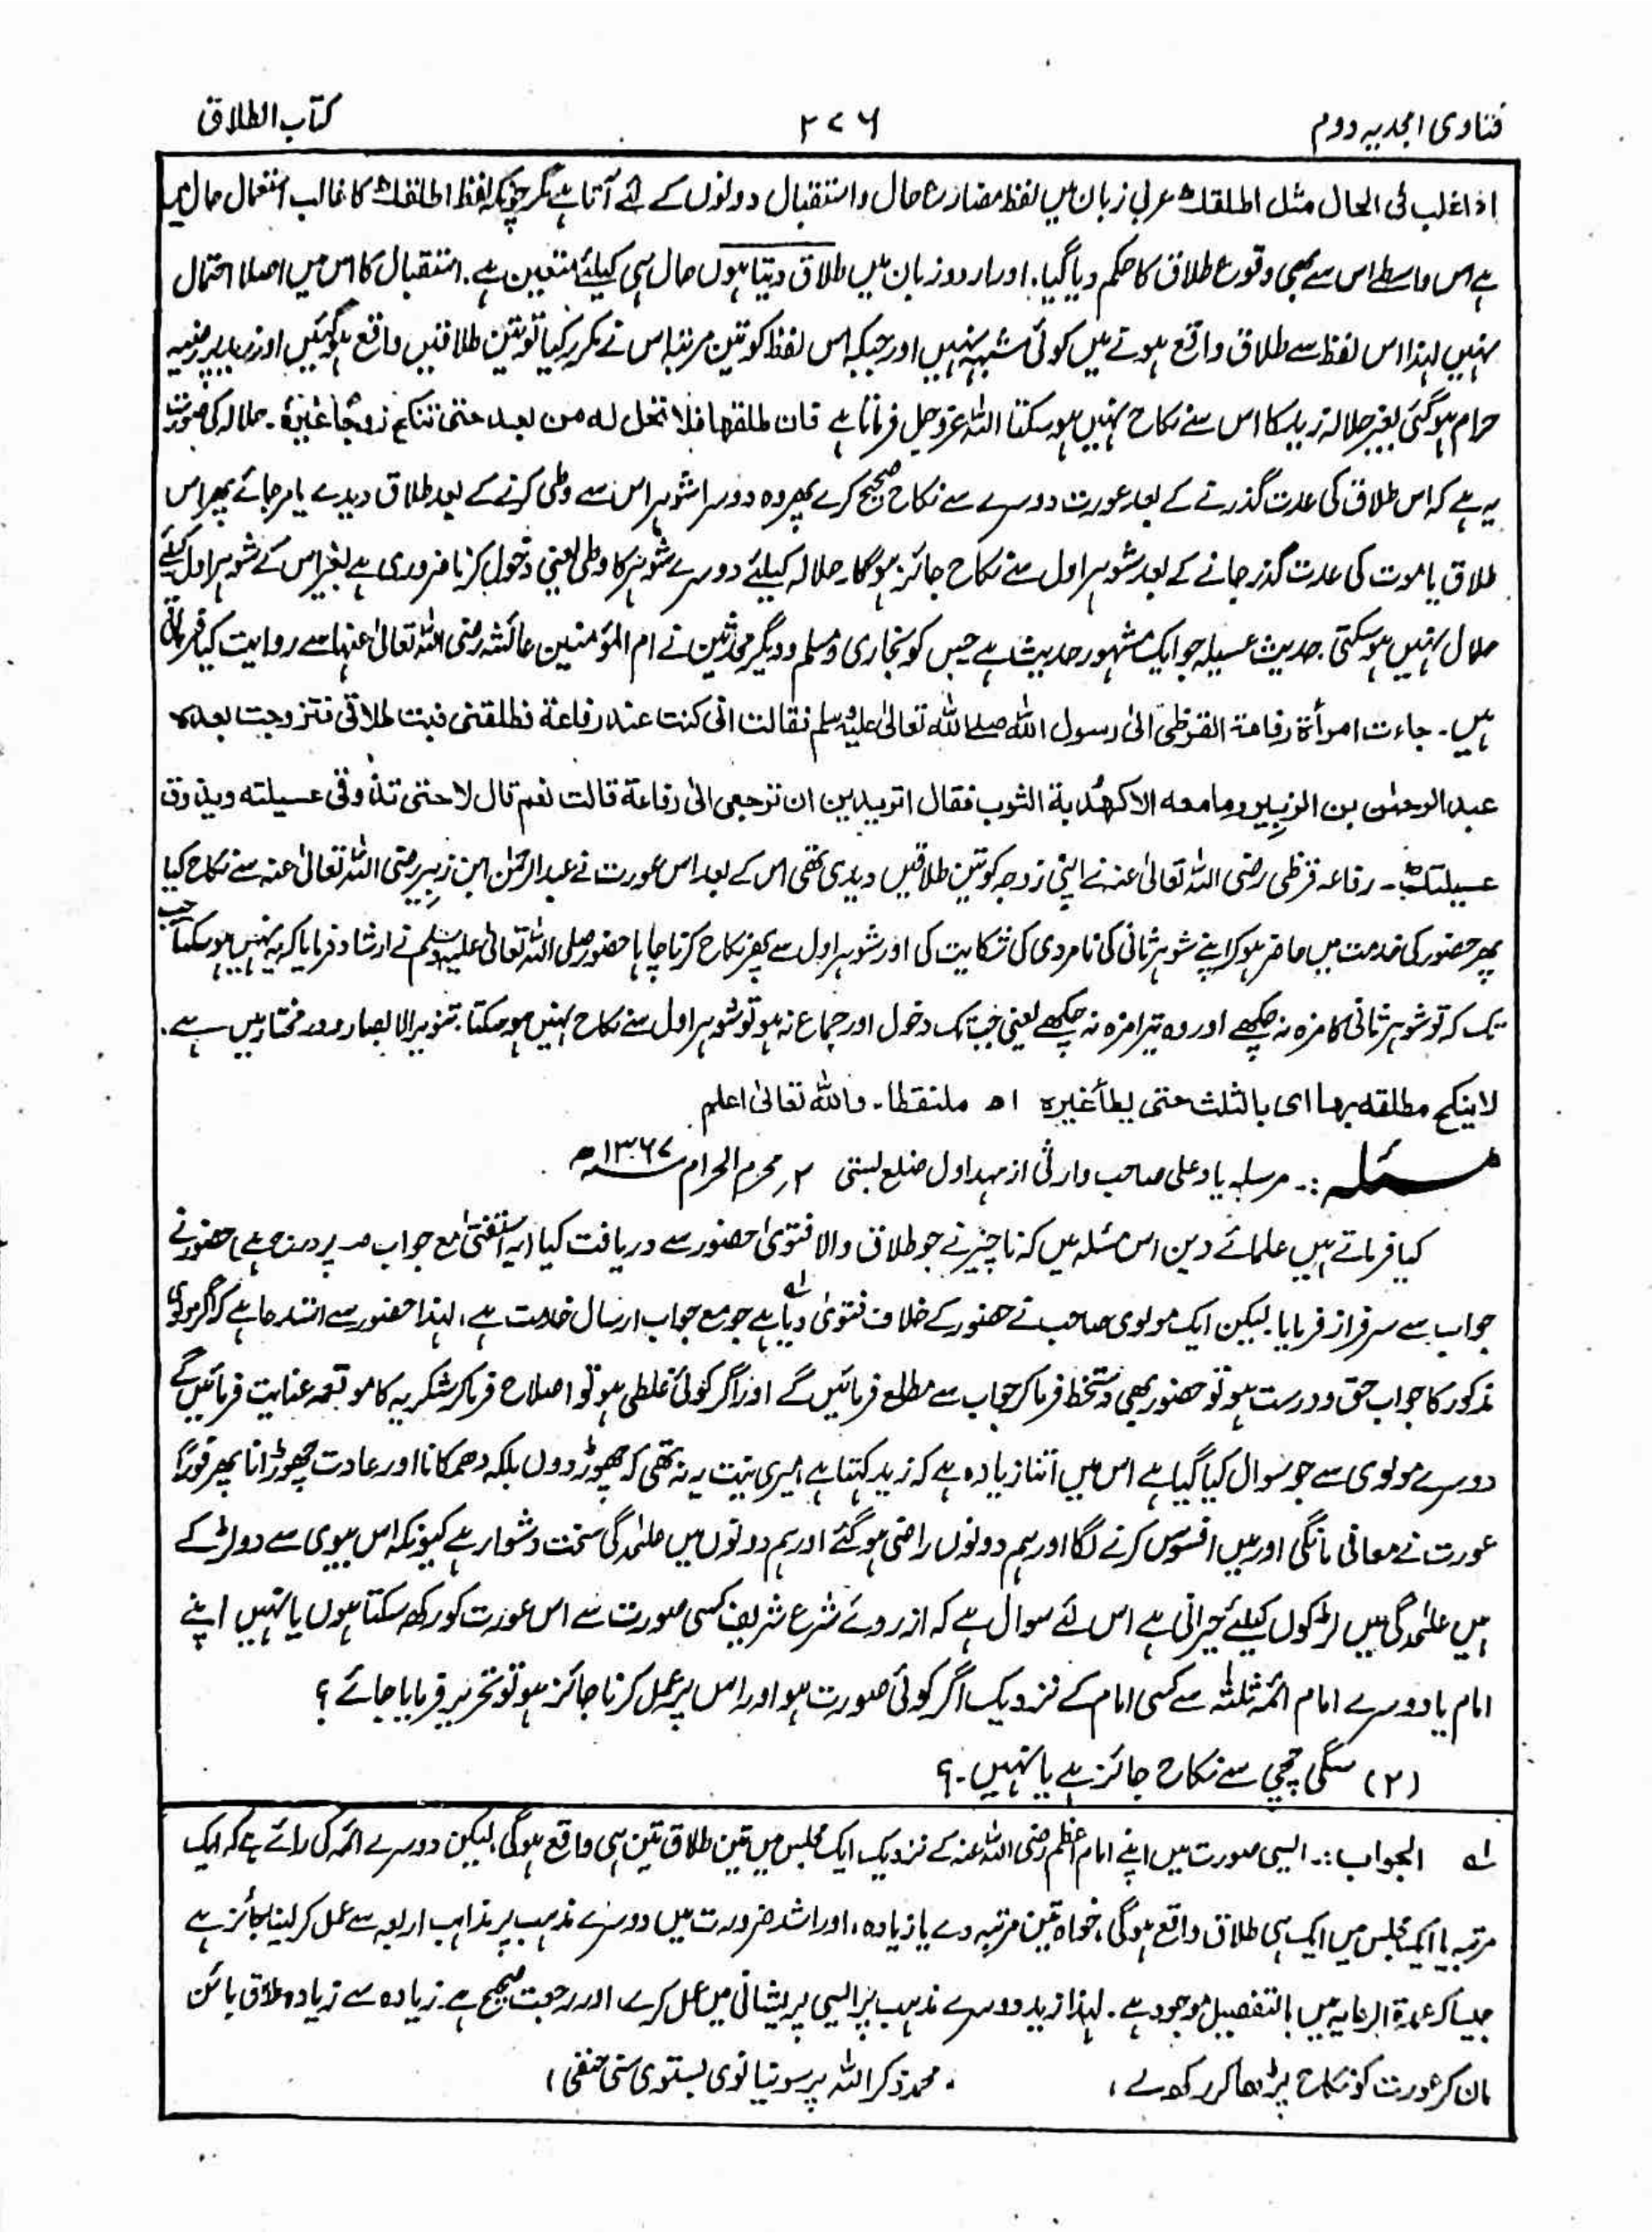 فتاوی امجدیہ دوم ۲۷۶ کتاب الطلاق
اذا غلب فی الحال مثل اطلقك عربی زبان میں لفظ مضارع حال و استقبال دونوں کے لئے آتا ہے مگر چونکہ لفظ اطلقك کا غالب استعمال حال میں
ہے اس واسطے اس سے بھی وقوع طلاق کا حکم دیا گیا. اور اردو زبان میں طلاق دیتا ہوں حال ہی کیلئے متعین ہے. استقبال کا اس میں اصلا احتمال
نہیں لہذا اس لفظ سے طلاق واقع ہونے میں کوئی شبہہ نہیں اور جبکہ اس لفظ کو تین مرتبہ اس نے مکرر کیا تو تین طلاقیں واقع ہو گئیں اور زید پر رضیہ
حرام ہو گئی بغیر حلالہ زید کا اس سے نکاح نہیں ہو سکتا اللہ عزوجل فرماتا ہے فان طلقها فلا تحل له من بعد حتی تنکح زوجا غیرہ۔ حلالہ کی صورت
یہ ہے کہ اس طلاق کی عدت گذرنے کے بعد عورت دوسرے سے نکاح صحیح کرے پھر وہ دوسرا شوہر اس سے وطی کرنے کے بعد طلاق دیدے یا مر جائے پھر اس
طلاق یا موت کی عدت گذر جانے کے بعد شوہر اول سے نکاح جائز ہو گا۔ حلالہ کیلئے دوسرے شوہر کا وطی یعنی دخول کرنا ضروری ہے بغیر اس کے شوہر اول کیلئے
حلال نہیں ہو سکتی. حدیث عسیلہ جو ایک مشہور حدیث ہے جس کو بخاری و مسلم و دیگر محدثین نے ام المؤمنین عائشہ رضی اللہ تعالیٰ عنہا سے روایت کیا فرماتی
ہیں۔ جاءت امرأۃ رفاعة القرظی الی رسول اللہ صلے اللہ تعالیٰ علیہ وسلم فقالت انی کنت عند رفاعة فطلقنی فبت طلاقی فتزوجت بعدہ
عبد الرحمٰن بن الزبیر وما معه الا کھُدبة الثوب فقال اتریدین ان ترجعی الی رفاعة قالت نعم قال لا حتی تذوقی عسیلته ویذوق
عسیلتك۔ رفاعہ قرظی رضی اللہ تعالیٰ عنہ نے اپنی زوجہ کو تین طلاقیں دیدی تھی اس کے بعد اس عورت نے عبد الرحمٰن ابن زبیر رضی اللہ تعالیٰ عنہ سے نکاح کیا
پھر حضور کی خدمت میں حاضر ہو کر اپنے شوہر ثانی کی نامردی کی شکایت کی اور شوہر اول سے پھر نکاح کرنا چاہا حضور صلی اللہ تعالیٰ علیہ وسلم نے ارشاد فرمایا کہ یہ نہیں ہو سکتا جب
تک کہ تو شوہر ثانی کا مزہ نہ چکھے اور وہ تیرا مزہ نہ چکھے یعنی جب تک دخول اور جماع نہ ہو تو شوہر اول سے نکاح نہیں ہو سکتا. تنویر الابصار و در مختار میں ہے.
لا ینکح مطلقه بھا ای بالثلث حتی یطأ غیرہ اھ ملتقطا۔ واللہ تعالیٰ اعلم
مسئلہ :۔ مرسلہ یاد علی صاحب وارثی از مہداول ضلع بستی ۲؍ محرم الحرام ۱۳۶۷ھ
کیا فرماتے ہیں علمائے دین اس مسئلہ میں کہ ناچیز نے جو طلاق والا فتویٰ حضور سے دریافت کیا (یہ استفتیٰ مع جواب صہ پر درج ہے) حضور نے
جواب سے سرفراز فرمایا. لیکن ایک مولوی صاحب نے حضور کے خلاف فتویٰ دیا ہے لہ جو مع جواب ارسال خدمت ہے، لہذا حضور سے استدعا ہے کہ اگر مولوی
مذکور کا جواب حق و درست ہو تو حضور بھی دستخط فرما کر جواب سے مطلع فرمائیں گے اور اگر کوئی غلطی ہو تو اصلاح فرما کر شکریہ کا موقعہ عنایت فرمائیں گے
دوسرے مولوی سے جو سوال کیا گیا ہے اس میں اتنا زیادہ ہے کہ زید کہتا ہے میری نیت یہ نہ تھی کہ چھوڑ دوں بلکہ دھمکانا اور عادت چھوڑانا پھر فوراً
عورت نے معافی مانگی اور میں افسوس کرنے لگا اور ہم دونوں راضی ہو گئے اور ہم دونوں میں علٰحدگی سخت دشوار ہے کیونکہ اس بیوی سے دو لڑکے
ہیں علٰحدگی میں لڑکوں کیلئے حیرانی ہے اس لئے سوال ہے کہ از روئے شرع شریف کسی صورت سے اس عورت کو رکھ سکتا ہوں یا نہیں اپنے
امام یا دوسرے امام ائمہ ثلٰثہ سے کسی امام کے نزدیک اگر کوئی صورت ہو اور اس پر عمل کرنا جائز ہو تو تحریر فرمایا جائے ؟
(۲) سگی چچی سے نکاح جائز ہے یا نہیں۔؟
لہ الجواب :۔ ایسی صورت میں اپنے امام اعظم رضی اللہ عنہ کے نزدیک ایک مجلس میں تین طلاق تین ہی واقع ہو گی. لیکن دوسرے ائمہ کی رائے ہے کہ ایک
مرتبہ یا ایک مجلس میں ایک ہی طلاق واقع ہو گی، خواہ تین مرتبہ دے یا زیادہ، اور اشد ضرورت میں دوسرے مذہب پر مذاہب اربعہ سے عمل کر لینا جائز ہے
جیسا کہ عمدۃ الرعایہ میں بالتفصیل موجود ہے. لہذا زید دوسرے مذہب پر ایسی پریشانی میں عمل کرے، اور رجعت صحیح ہے. زیادہ سے زیادہ طلاق بائن
مان کر عورت کو نکاح پڑھا کر رکھ لے، محمد ذکر اللہ بستوی سنی حنفی)